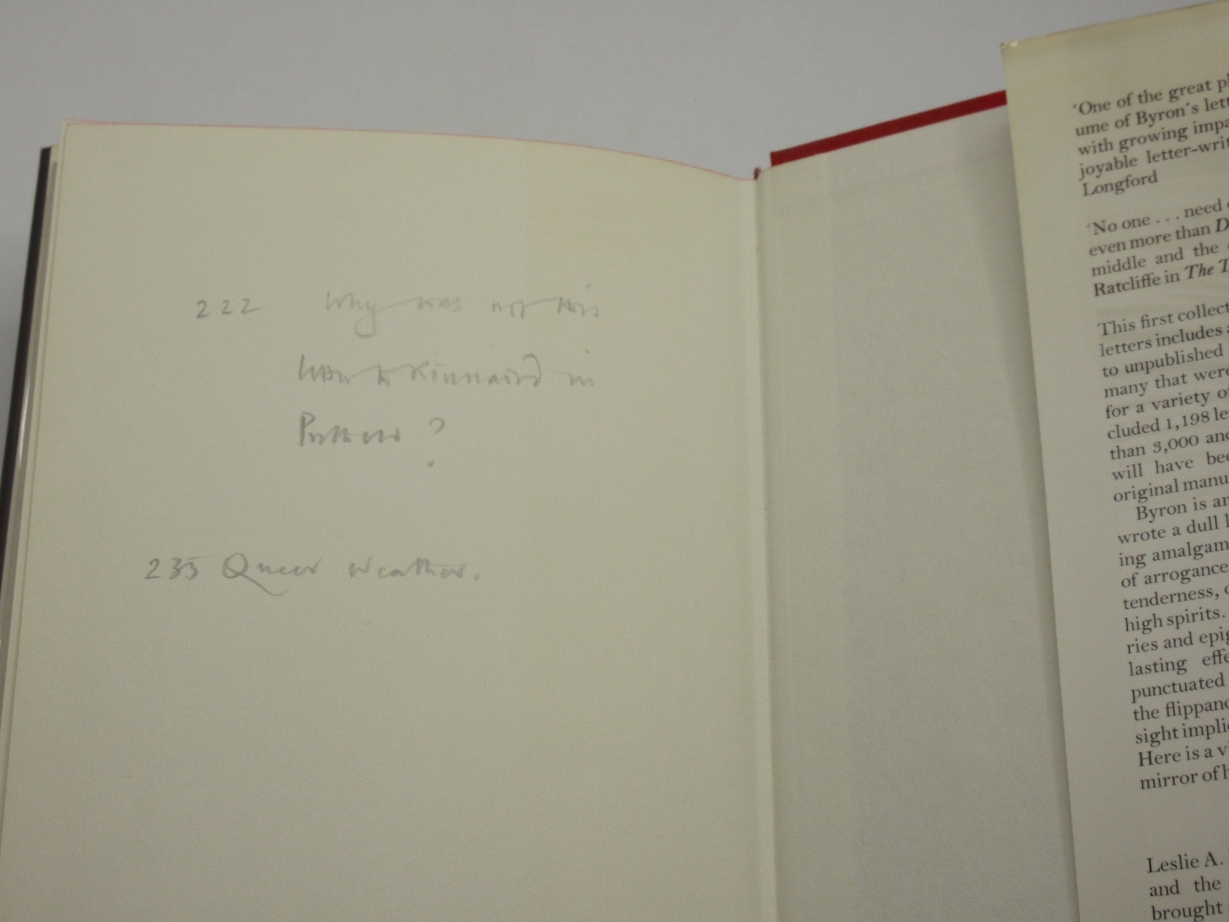 222 Why was not this
letter to Kinnaird in
?
235 Queer weather.
'One of the great
ume of Byron's
with growing
joyable
Longford
'No one . . . need
even more than
middle and the
Ratcliffe in The
This first
letters includes
to unpublished
many that were
for a variety
cluded 1,198
than 3,000 and
will have
original
Byron is
wrote a dull
ing
of arrogance
tenderness,
high spirits.
ries and
lasting
punctuated
the
sight
Here is a
mirror of
Leslie A.
and the
brought